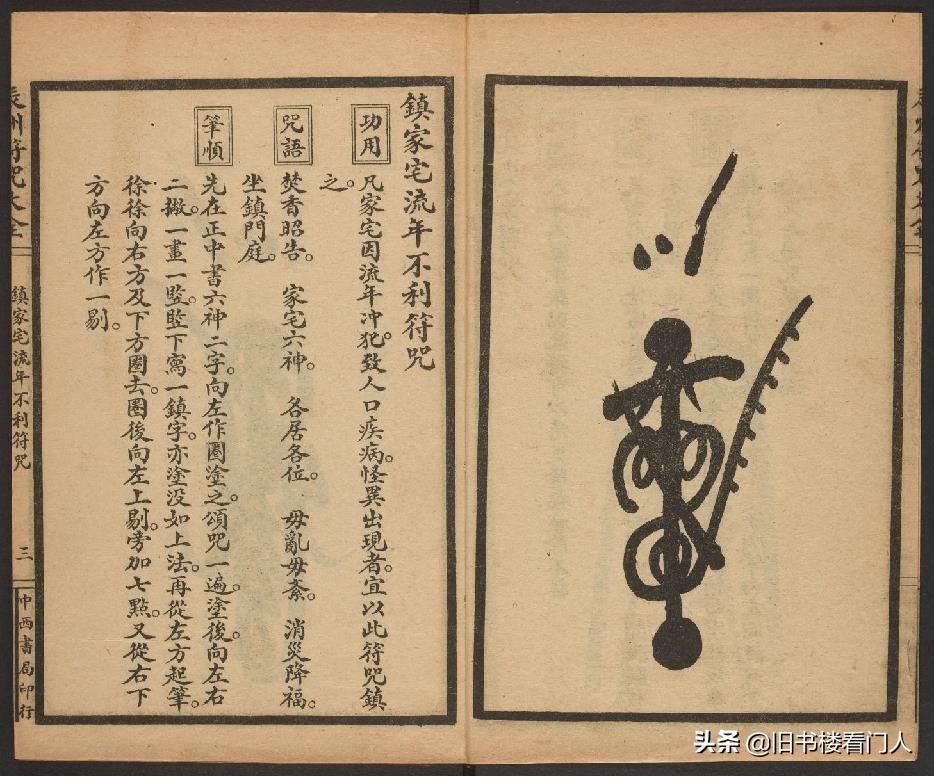 鎮家宅流年不利符咒
功用
凡家宅因流年冲犯。致人口疾病。怪異出現者。宜以此符咒鎮
之。
咒語
焚香昭告。 家宅六神。 各居各位。 毋亂毋紊。 消災降福。
坐鎮門庭。
筆順
先在正中書六神二字。向左作圈塗之。頌咒一遍。塗後。向左右
二撇。一畫一豎。豎下寫一鎮字。亦塗没如上法。再從左方起筆。
徐徐向右方及下方圈去。圈後向左上剔。旁加七點。又從右下
方向左方作一剔。
鎮家宅流年不利符咒
三
中西書局印行
头条 @旧书楼看门人